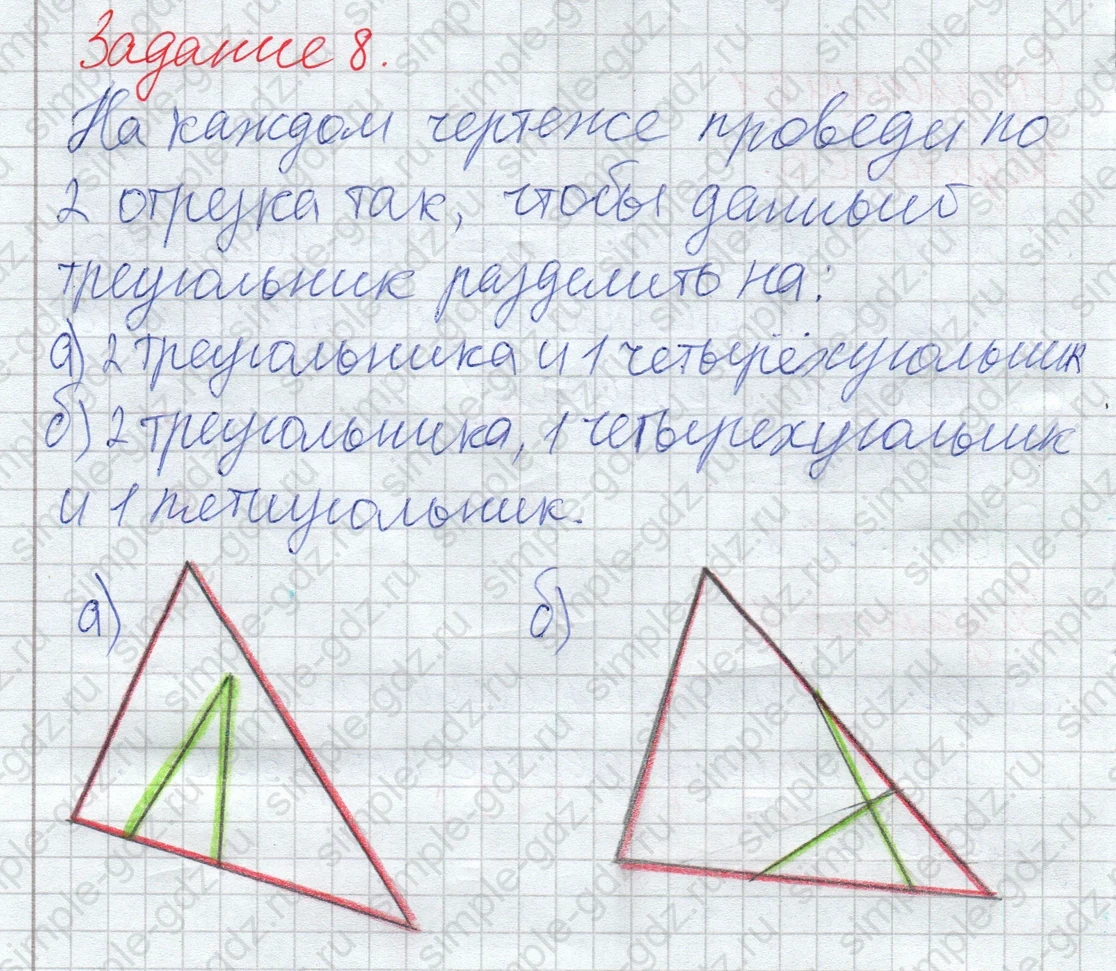 Задание 8.
На каждом чертеже проведи по
2 отрезка так, чтобы данный
треугольник разделить на:
а) 2 треугольника и 1 четырёхугольник
б) 2 треугольника, 1 четырехугольник
и 1 пятиугольник.
а) б)
simple-gdz.ru